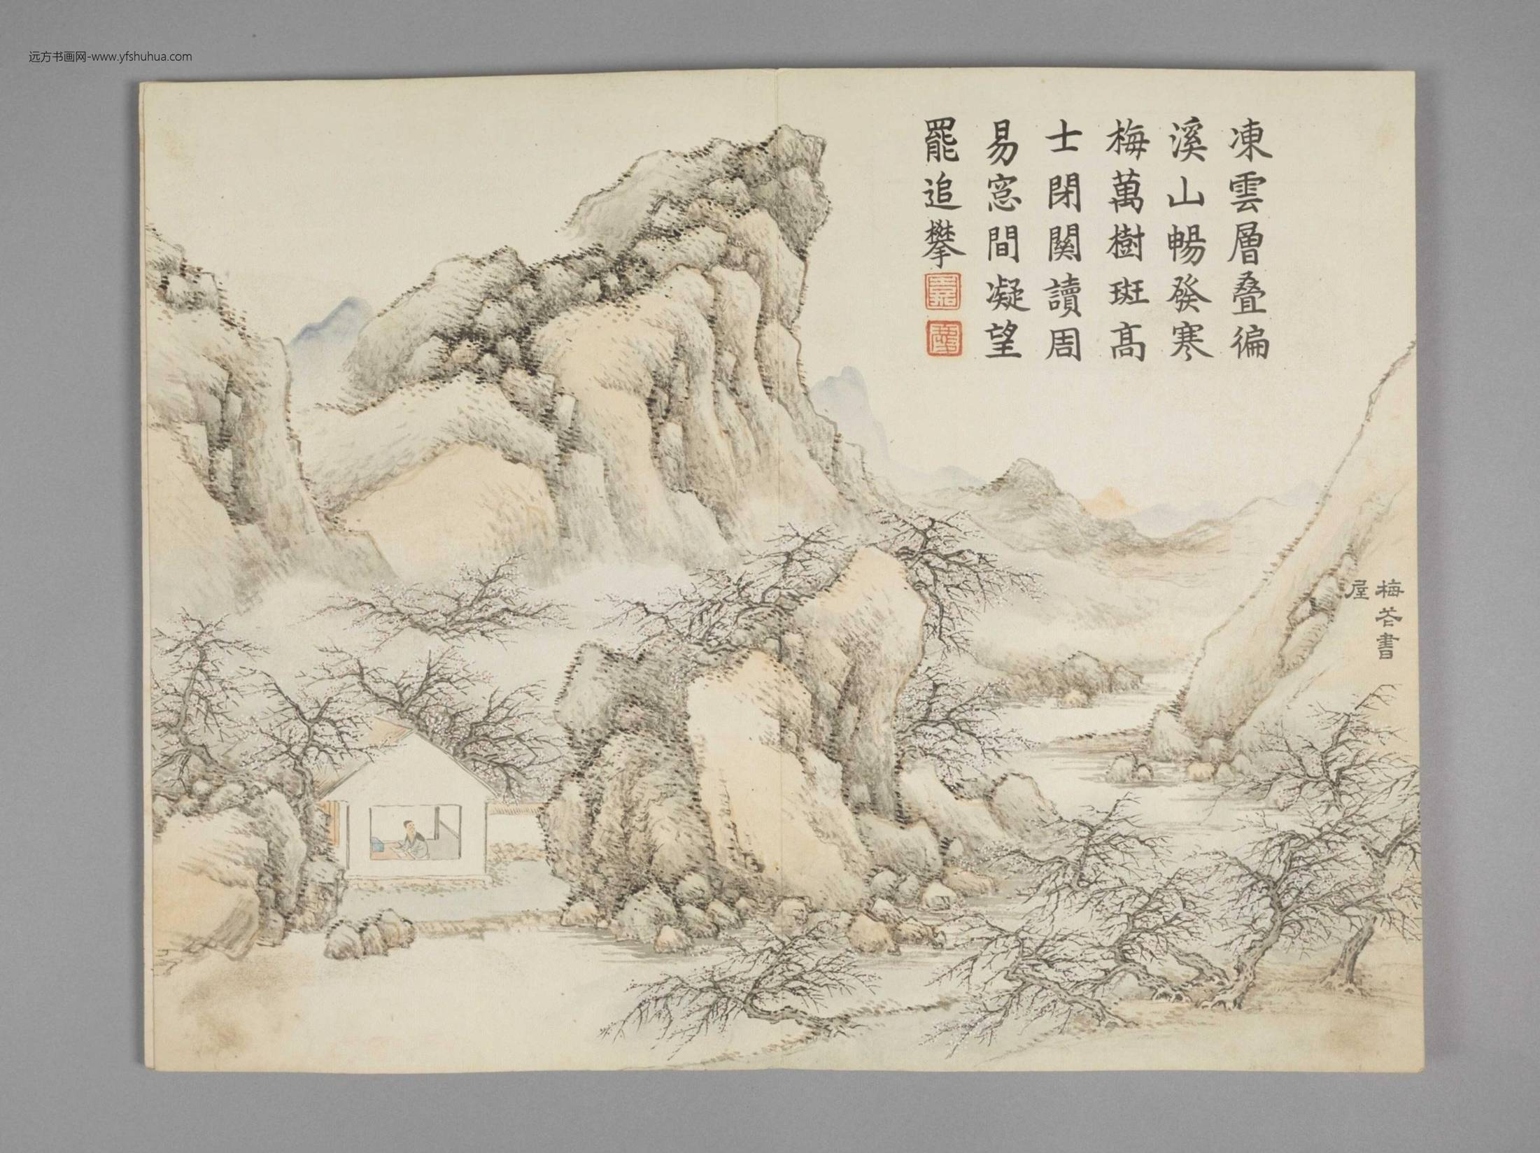 远方书画网-www.yfshuhua.com
凍雲層叠徧
溪山暢發寒
梅萬樹斑高
士閉関讀周
易窓間凝望
罷追攀
梅花書
屋